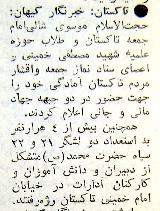 تاکستان: خبرنگار کیهان:
حجت‌الاسلام موسوی شالی‌امام
جمعه تاکستان و طلاب حوزه
علمیه شهید مصطفی خمینی و
اعضای ستاد نماز جمعه واقشار
مردم تاکستان آمادگی خود را
جهت حضور در دو جبهه جهاد
مالی و جانی اعلام کردند.
همچنین بیش از ۴ هزارنفر
به استعداد دو لشگر ۲۱ و ۲۲
سپاه حضرت محمد(ص)متشکل
از دبیران و دانش آموزان و
کارکنان ادارات در خیابان
امام خمینی تاکستان رژه‌رفتند.